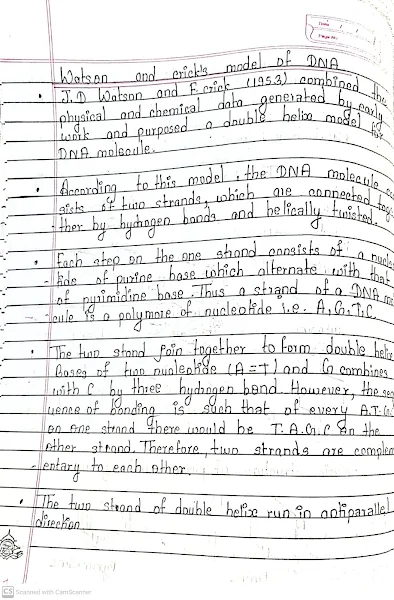 Watson and crick's model of DNA
• J.D Watson and F. crick (1953) combined the
physical and chemical data generated by early
work and purposed a double helix model for
DNA molecule.
• According to this model, the DNA molecule con
sists of two strands, which are connected toge
-ther by hydrogen bonds and helically twisted.
• Each step on the one strand consists of a nucleo
-tide of purine base which alternate with that
of pyrimidine base. Thus a strand of a DNA mo
-cule is a polymore of nucleotide i.e. A, G, T, C.
• The two stand join together to form double helix
Bases of two nucleotide (A=T) and G combines
with C by three hydrogen bond However, the seq
uence of bonding is such that of every A.T.G.
on one strand there would be T.A.G.C on the
other strand. Therefore, two strands are complem
-entary to each other.
• The two strand of double helix run in antiparallel
direction
CS Scanned with CamScanner